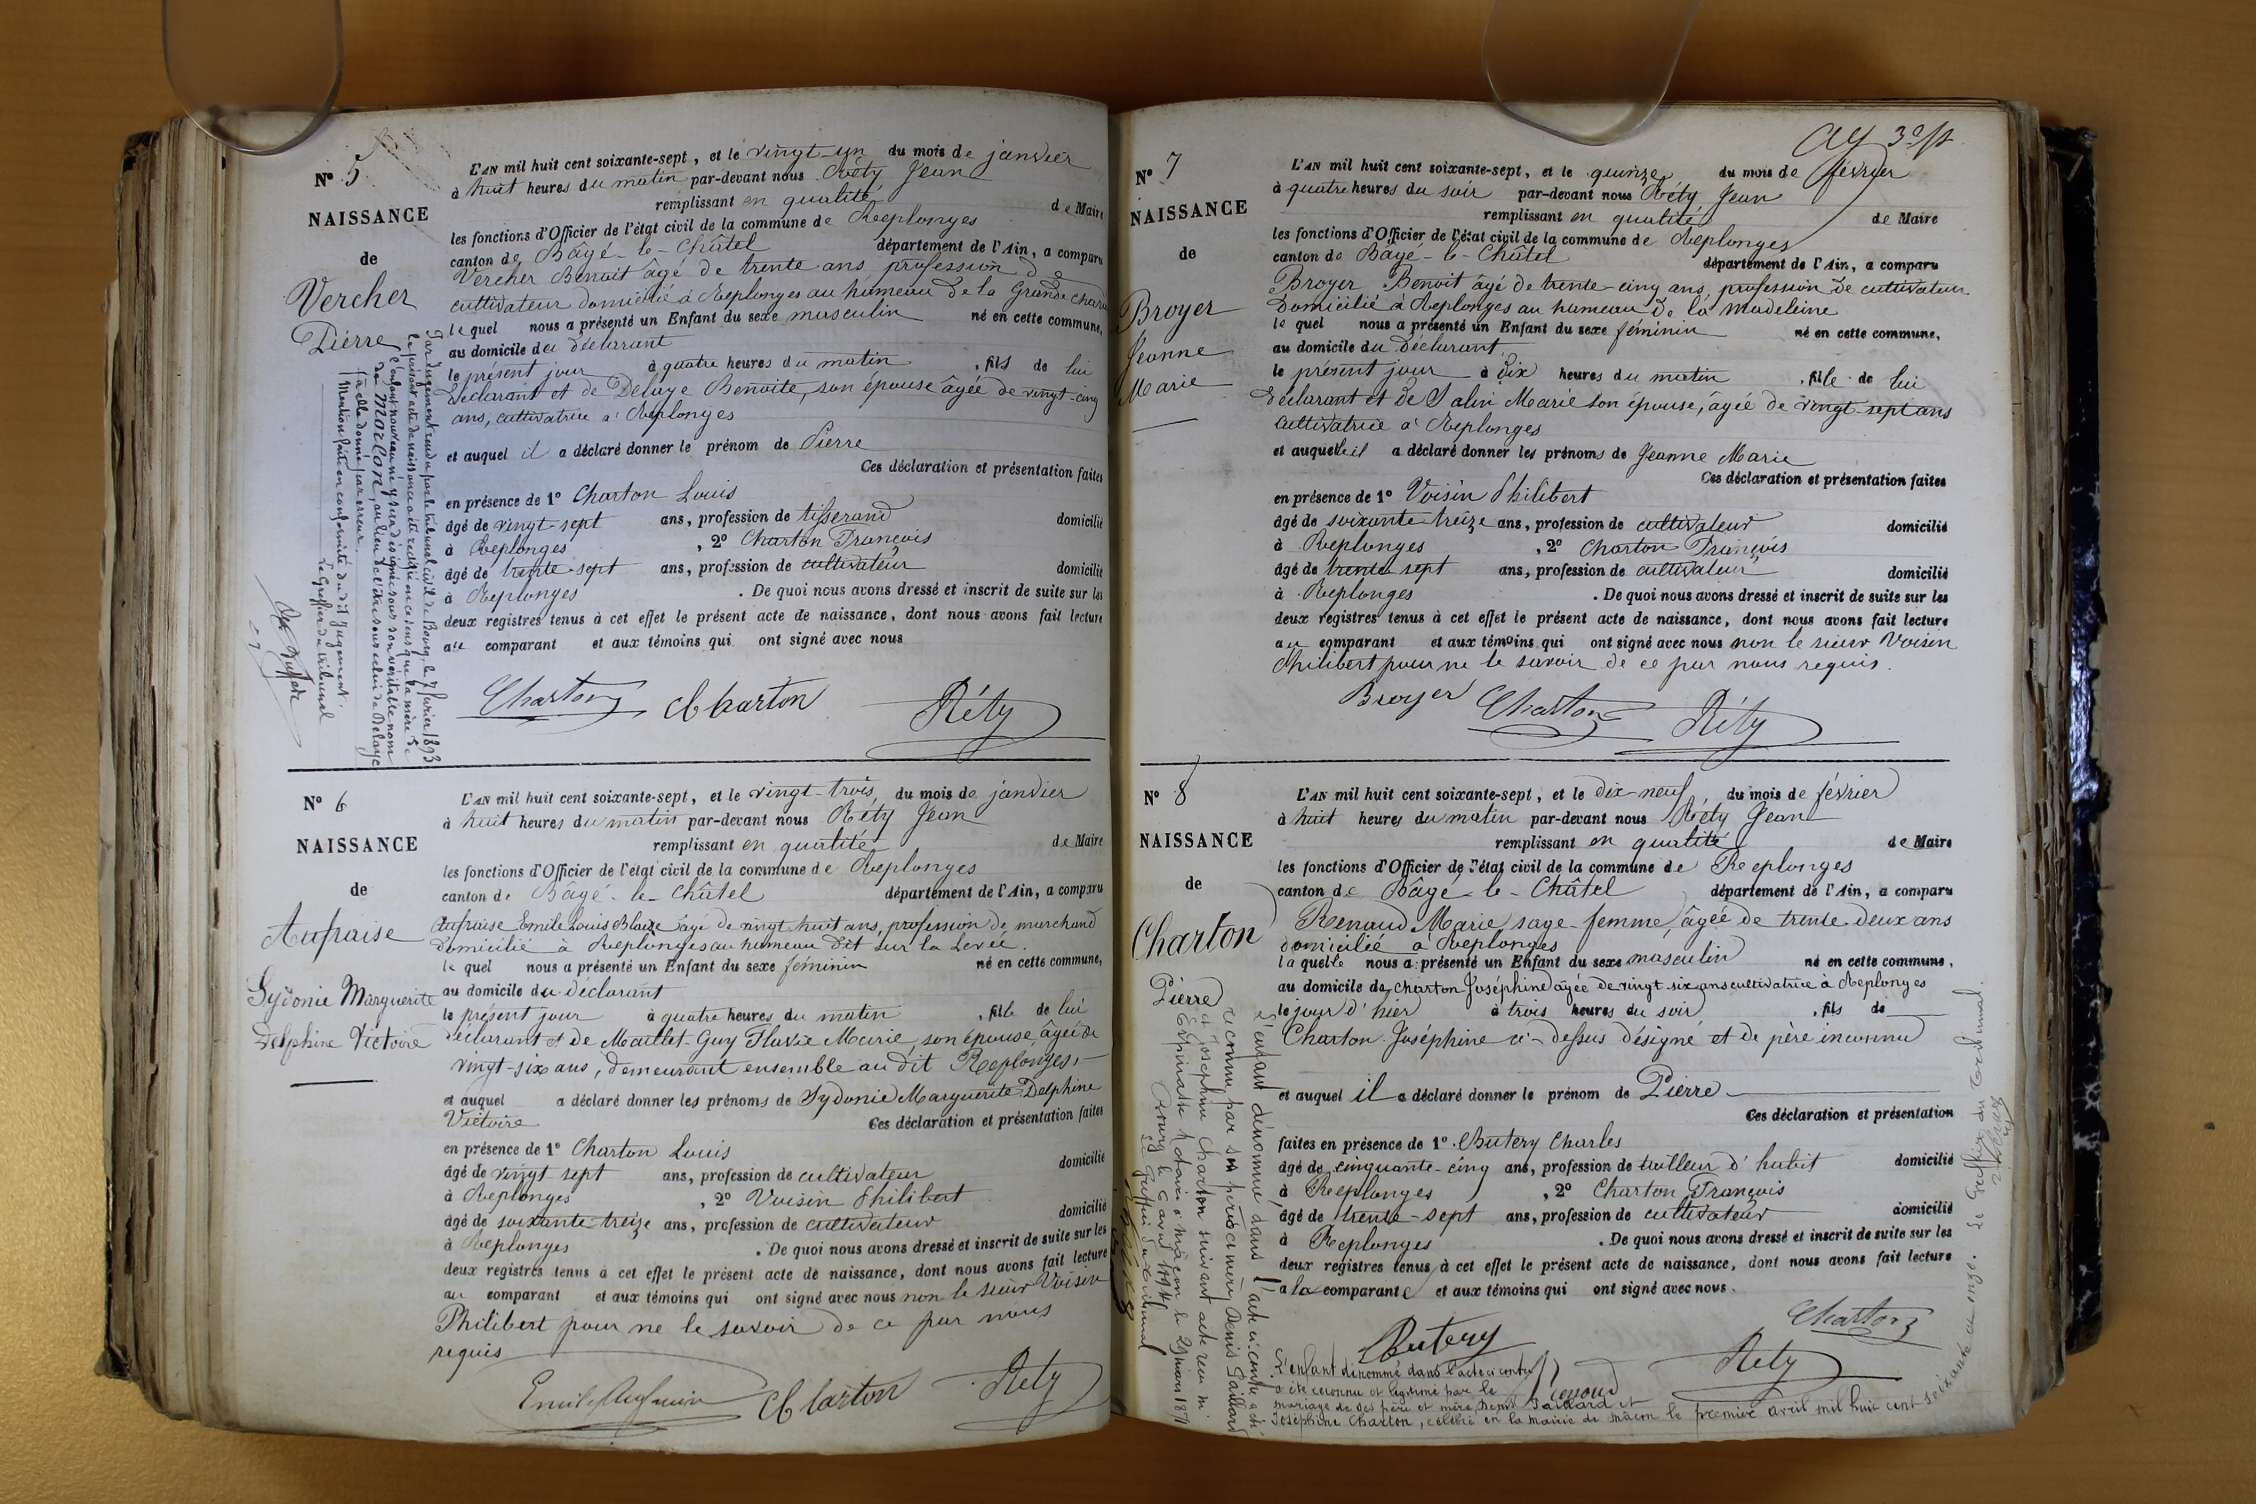 N° 5
NAISSANCE
de
Vercher
Pierre
L'AN mil huit cent soixante-sept, et le vingt-un du mois de janvier
à huit heures du matin par-devant nous Réty Jean
remplissant en qualité de Maire
les fonctions d'Officier de l'état civil de la commune de Replonges
canton de Bâgé-le-Châtel département de l'Ain, a comparu
Vercher Benoit âgé de trente ans, profession de
cultivateur domicilié à Replonges au hameau de la Grande charrière
le quel nous a présenté un Enfant du sexe masculin né en cette commune,
au domicile du déclarant
le présent jour à quatre heures du matin, fils de lui
déclarant et de Delaye Benoite, son épouse âgée de vingt-cinq
ans, cultivatrice à Replonges
et auquel il a déclaré donner le prénom de Pierre
Ces déclaration et présentation faites
en présence de 1° Charton Louis
âgé de vingt-sept ans, profession de tisserand domicilié
à Replonges, 2° Charton François
âgé de trente-sept ans, profession de cultivateur domicilié
à Replonges. De quoi nous avons dressé et inscrit de suite sur les
deux registres tenus à cet effet le présent acte de naissance, dont nous avons fait lecture
au comparant et aux témoins qui ont signé avec nous
Charton Charton Réty
Par Jugement rendu par le tribunal civil de Bourg, le 7 février 1893
le présent acte de naissance a été rectifié en ce sens que la mère de
l'enfant nouveau né y sera désignée sous son véritable nom
de MORLON, au lieu de l'être sous celui de Delaye
à elle donné par erreur.
Mention faite en conformité dudit jugement.
Le Greffier du tribunal
N° 6
NAISSANCE
de
Aupaise
Sydonie Marguerite
Delphine Victoire
L'AN mil huit cent soixante-sept, et le vingt-trois du mois de janvier
à huit heures du matin par-devant nous Réty Jean
remplissant en qualité de Maire
les fonctions d'Officier de l'état civil de la commune de Replonges
canton de Bâgé-le-Châtel département de l'Ain, a comparu
Aupaise Emile Louis Blaize âgé de vingt huit ans, profession de marchand
domicilié à Replonges au hameau dit sur la Levée.
le quel nous a présenté un Enfant du sexe féminin né en cette commune,
au domicile du déclarant
le présent jour à quatre heures du matin, fille de lui
déclarant et de Maillet-Guy Flavie Marie, son épouse, âgée de
vingt-six ans, demeurant ensemble au dit Replonges,
et auquel a déclaré donner les prénoms de Sydonie Marguerite Delphine
Victoire Ces déclaration et présentation faites
en présence de 1° Charton Louis
âgé de vingt sept ans, profession de cultivateur domicilié
à Replonges, 2° Voisin Philibert
âgé de soixante-treize ans, profession de cultivateur domicilié
à Replonges. De quoi nous avons dressé et inscrit de suite sur les
deux registres tenus à cet effet le présent acte de naissance, dont nous avons fait lecture
au comparant et aux témoins qui ont signé avec nous non le sieur Voisin
Philibert pour ne le savoir de ce par nous
requis
Charton Réty
ay 3e
N° 7
NAISSANCE
de
Broyer
Jeanne
Marie
L'AN mil huit cent soixante-sept, et le quinze du mois de février
à quatre heures du soir par-devant nous Réty Jean
remplissant en qualité de Maire
les fonctions d'Officier de l'état civil de la commune de Replonges
canton de Bâgé-le-Châtel département de l'Ain, a comparu
Broyer Benoit âgé de trente-cinq ans, profession de cultivateur
domicilié à Replonges au hameau de la madeleine
le quel nous a présenté un Enfant du sexe féminin né en cette commune,
au domicile du déclarant
le présent jour à dix heures du matin, fille de lui
déclarant et de Salin Marie son épouse, âgée de vingt-sept ans
cultivatrice à Replonges
et auquel il a déclaré donner les prénoms de Jeanne Marie
Ces déclaration et présentation faites
en présence de 1° Voisin Philibert
âgé de soixante-treize ans, profession de cultivateur domicilié
à Replonges, 2° Charton François
âgé de trente sept ans, profession de cultivateur domicilié
à Replonges. De quoi nous avons dressé et inscrit de suite sur les
deux registres tenus à cet effet le présent acte de naissance, dont nous avons fait lecture
au comparant et aux témoins qui ont signé avec nous non le sieur Voisin
Philibert pour ne le savoir de ce par nous requis.
Broyer Charton Réty
N° 8
NAISSANCE
de
Charton
Pierre
L'AN mil huit cent soixante-sept, et le dix-neuf du mois de février
à huit heures du matin par-devant nous Réty Jean
remplissant en qualité de Maire
les fonctions d'Officier de l'état civil de la commune de Replonges
canton de Bâgé-le-Châtel département de l'Ain, a comparu
Renaud Marie, sage-femme, âgée de trente-deux ans
domiciliée à Replonges
la quelle nous a présenté un Enfant du sexe masculin né en cette commune,
au domicile de Charton Joséphine âgée de vingt six ans cultivatrice à Replonges
le jour d'hier à trois heures du soir, fils de
Charton Joséphine ci-dessus désigné et de père inconnu
et auquel il a déclaré donner le prénom de Pierre
Ces déclaration et présentation
faites en présence de 1° Butery Charles
âgé de cinquante-cinq ans, profession de tailleur d'habit domicilié
à Replonges, 2° Charton François
âgé de trente-sept ans, profession de cultivateur domicilié
à Replonges. De quoi nous avons dressé et inscrit de suite sur les
deux registres tenus à cet effet le présent acte de naissance, dont nous avons fait lecture
à la comparante et aux témoins qui ont signé avec nous.
Charton
Butery Renaud Réty
L'enfant dénommé dans l'acte ci contre
a été reconnu et légitimé par le
mariage de ses père et mère, Denis Gaillard et
Joséphine Charton, célébré en la mairie de Mâcon le premier avril mil huit cent soixante et onze. Le Greffier du tribunal.
L'enfant dénommé dans l'acte ci contre a été
reconnu par ses père et mère Denis Gaillard
et Josephine Charton suivant acte reçu
notaire à Mâcon le 29 mars 1871
Le Greffier du tribunal